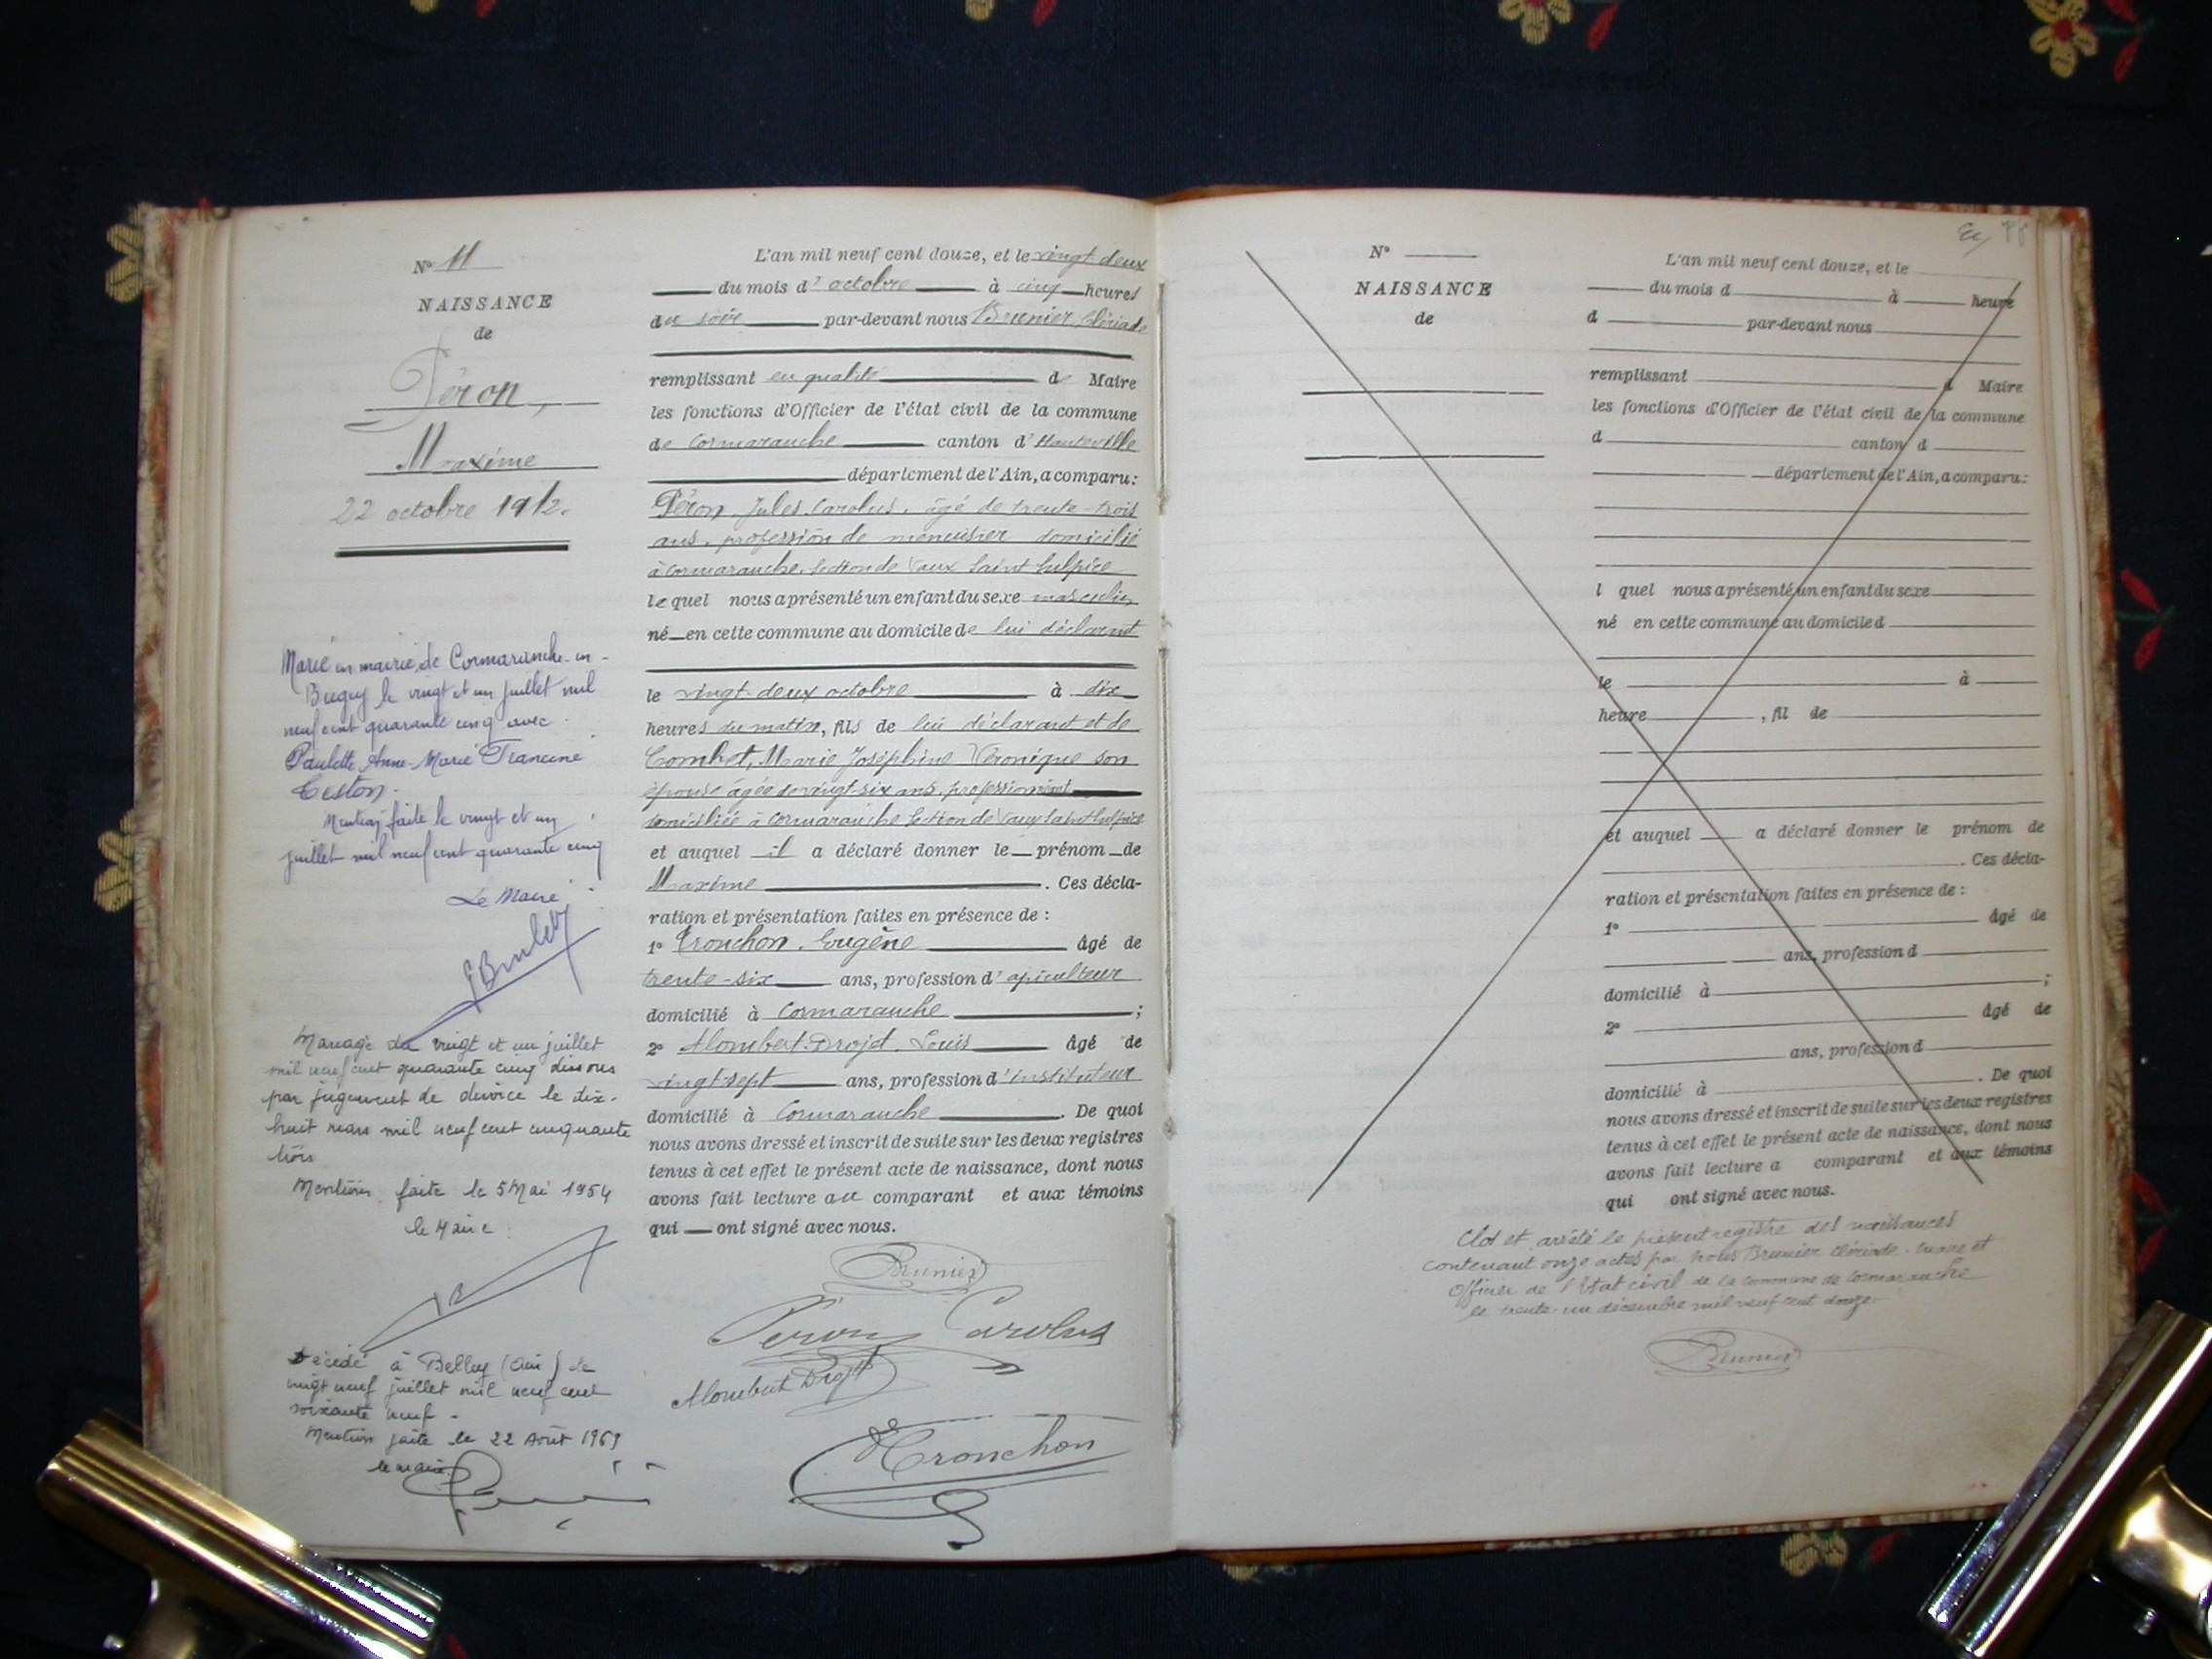 N° 11
NAISSANCE
de
Péron,
Maxime
22 octobre 1912.
Marié en mairie de Cormaranche-en-
Bugey le vingt et un juillet mil
neuf cent quarante cinq avec
Paulette Anne-Marie Francine
Teston.
Mention faite le vingt et un
juillet mil neuf cent quarante cinq
Le Maire
Mariage du vingt et un juillet
mil neuf cent quarante cinq dissous
par jugement de divorce le dix-
huit mars mil neuf cent cinquante
trois
Mention faite le 5 Mai 1954
le Maire
Décédé à Belley (Ain) le
vingt neuf juillet mil neuf cent
soixante neuf -
Mention faite le 22 Août 1969
le maire
L'an mil neuf cent douze, et le vingt deux
du mois d'octobre à cinq heures
du soir par-devant nous Brunier Clériade
remplissant en qualité de Maire
les fonctions d'Officier de l'état civil de la commune
de Cormaranche canton d'Hauteville
département de l'Ain, a comparu:
Péron Jules Carolus, âgé de trente-trois
ans, profession de menuisier domicilié
à Cormaranche, Section de Vaux Saint Sulpice
lequel nous a présenté un enfant du sexe masculin
né en cette commune au domicile de lui déclarant
le vingt-deux octobre à dix
heures du matin, fils de lui déclarant et de
Combet, Marie Joséphine Véronique son
épouse âgée de vingt-six ans, profession
domiciliée à Cormaranche Section de Vaux Saint Sulpice
et auquel il a déclaré donner le prénom de
Maxime. Ces décla-
ration et présentation faites en présence de :
1° Tronchon, Eugène âgé de
trente-six ans, profession d'apiculteur
domicilié à Cormaranche ;
2° Alombert-Drojet, Louis âgé de
vingt-sept ans, profession d'instituteur
domicilié à Cormaranche. De quoi
nous avons dressé et inscrit de suite sur les deux registres
tenus à cet effet le présent acte de naissance, dont nous
avons fait lecture au comparant et aux témoins
qui ont signé avec nous.
Brunier
Péron Carolus
Alombert Drojt
Tronchon
N°
NAISSANCE
de
L'an mil neuf cent douze, et le
du mois d à heure
d par-devant nous
remplissant d Maire
les fonctions d'Officier de l'état civil de la commune
d canton d
département de l'Ain, a comparu:
l quel nous a présenté un enfant du sexe
né en cette commune au domicile d
le à
heure , fil de
et auquel a déclaré donner le prénom de
. Ces décla-
ration et présentation faites en présence de :
1° âgé de
ans, profession d
domicilié à ;
2° âgé de
ans, profession d
domicilié à . De quoi
nous avons dressé et inscrit de suite sur les deux registres
tenus à cet effet le présent acte de naissance, dont nous
avons fait lecture a comparant et aux témoins
qui ont signé avec nous.
Clos et arrêté le présent registre des naissances
contenant onze actes par nous Brunier Clériade, maire et
Officier de l'Etat civil de la commune de Cormaranche
le trente-un décembre mil neuf cent douze.
Brunier